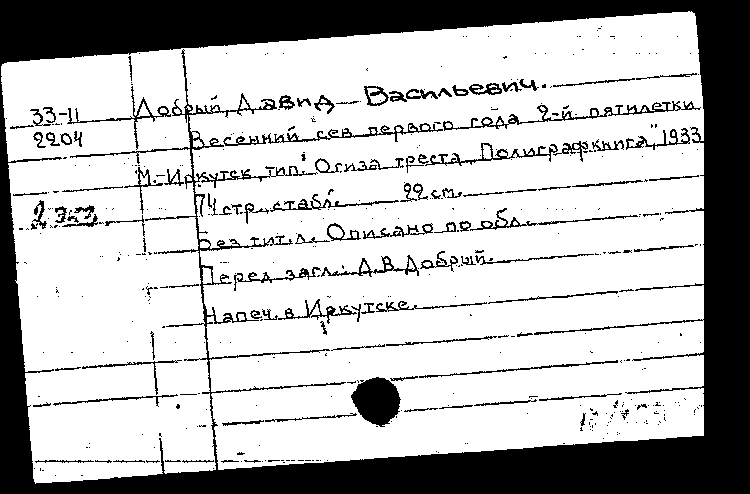 33-11 Добрый, Давид Васильевич.
2204 Весенний сев первого года 2-й пятилетки
М.-Иркутск, тип. Огиза треста „Полиграфкнига", 1933
2 экз. 74 стр., с табл. 22 см.
Без тит. л. Описано по обл.
Перед загл.: Д.В. Добрый.
Напеч. в Иркутске.